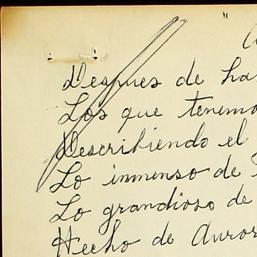 Despues de ha
Los que tenemo
Describiendo el
Lo inmenso de
Lo grandioso de
Hecho de Auror